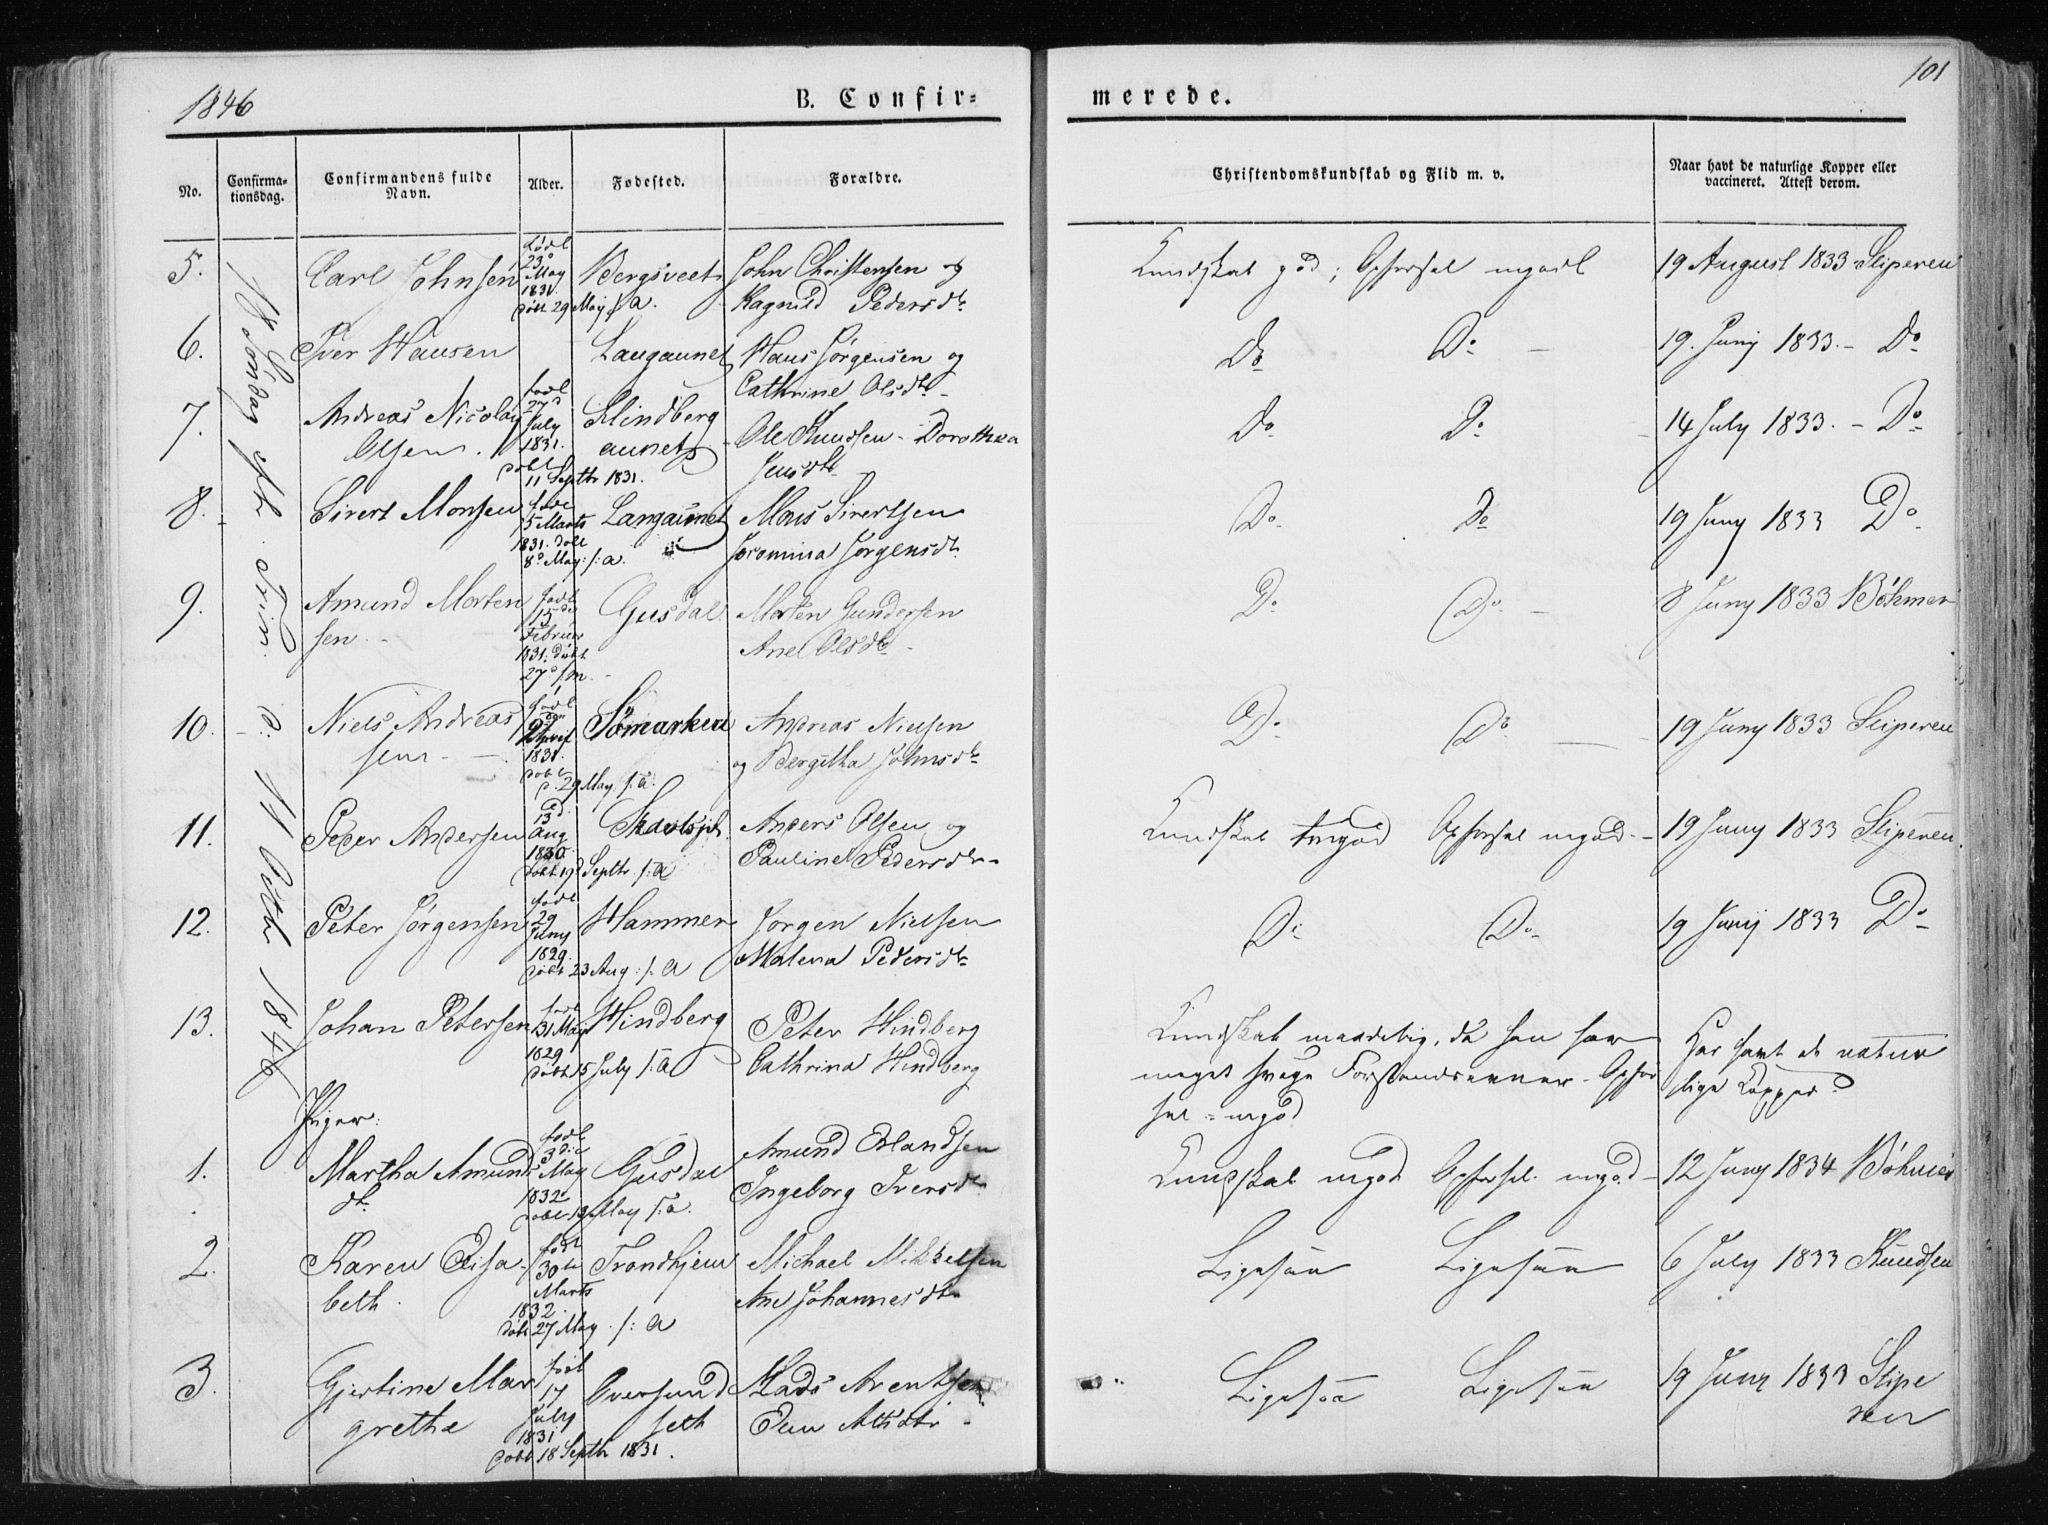 1846
B. Confir=
merede.
101
No.
Confirma-
tionsdag.
Confirmandens fulde
Navn.
Alder.
Fødested.
Forældre.
Christendomskundskab og Flid m. v.
Naar havt de naturlige Kopper eller
vaccineret. Attest derom.
18 Søndag eft. Trin. d: 11 Octb 1846
5.
Carl Johnsen
født
23de
May
1831.
døbt 29 May s. a.
Bergsveet
John Christensen og
Ragnild Pedersdtr
Kundskab god; Opførsel mgodt
19 August 1833 Sliperen
6.
Iver Hansen
Langaunet
Hans Jørgensen og
Cathrine Olsdtr
Do Do
19. Juny 1833. - Do
7.
Andreas Nicolay
Olsen.
født
27de
July
1831.
døbt
11 Septbr 1831.
Hindberg
aunet
Ole Knudsen - Dorothea
Jensdtr
Do Do
14 July 1833. - Do
8.
Sivert Monsen
føde
15 Marts
1831. døbt
8de May s. a.
Langaunet
Mons Sivertsen
Jeromina Jørgensdtr
Do Do
19 Juny 1833 Do
9.
Amund Morten
sen.
født
15 de
Februar
1831. døbt
27de s. m.
Gusdal
Morten Gundersen
Ane Olsdtr
Do Do
8 Juny 1833 Böhmer
10.
Niels Andreas
sen
født
April
1831.
døbt
d. 29 May s. a.
Sömarken
Andreas Nielsen
og Bergitha Johnsdtr
Do Do
19 Juny 1833 Sliperen
11.
Peder Andersen
13 d.
Aug
1830.
døbt 19d Septbr s. a
Anders Olsen og
Pauline Pedersdtr
Kundskab tmgod Opførsel mgod
19 Juny 1833 Sliperen.
12.
Peter Jørgensen
født
29
1829.
døbt 23 Aug: s. a
Hammer
Jørgen Nielsen
Malena Pedersdtr
Do Do
19 Junij 1833 Do
13.
Johan Petersen
født
31 May
1829
døbt 15 July s. a
Hindberg
Peter Hindberg
Cathrina Hindberg
Kundskab maadelig, da han har
meget svage Forstandsevner - Opfør
sel - mgod
Har havt de natur
lige Kopper
Piger:
1.
Martha Amunds
dtr
født
3die
May
1832
døbt 19 May s. a.
Gusdal
Amund Erlandsen
Ingeborg Iversdtr
Kundskab mgod Opførsel mgod
12 Juny 1834 Böhmer
2.
Karen Elisa-
beth.
født
30te
Marts
1832.
døbt 27 May s. a
Trondhjem
Michael Mikkelsen
Ane Johannesdtr
Ligesaa Ligesaa
6 July 1833 Knudsen
3.
Gjertine Mar
grethe
født
17
July
1831
døbt 18 Septbr 1831.
Oversund
seth
Mads Arentsen
Ligesaa Ligesaa
19 Juny 1833 Slipe
ren